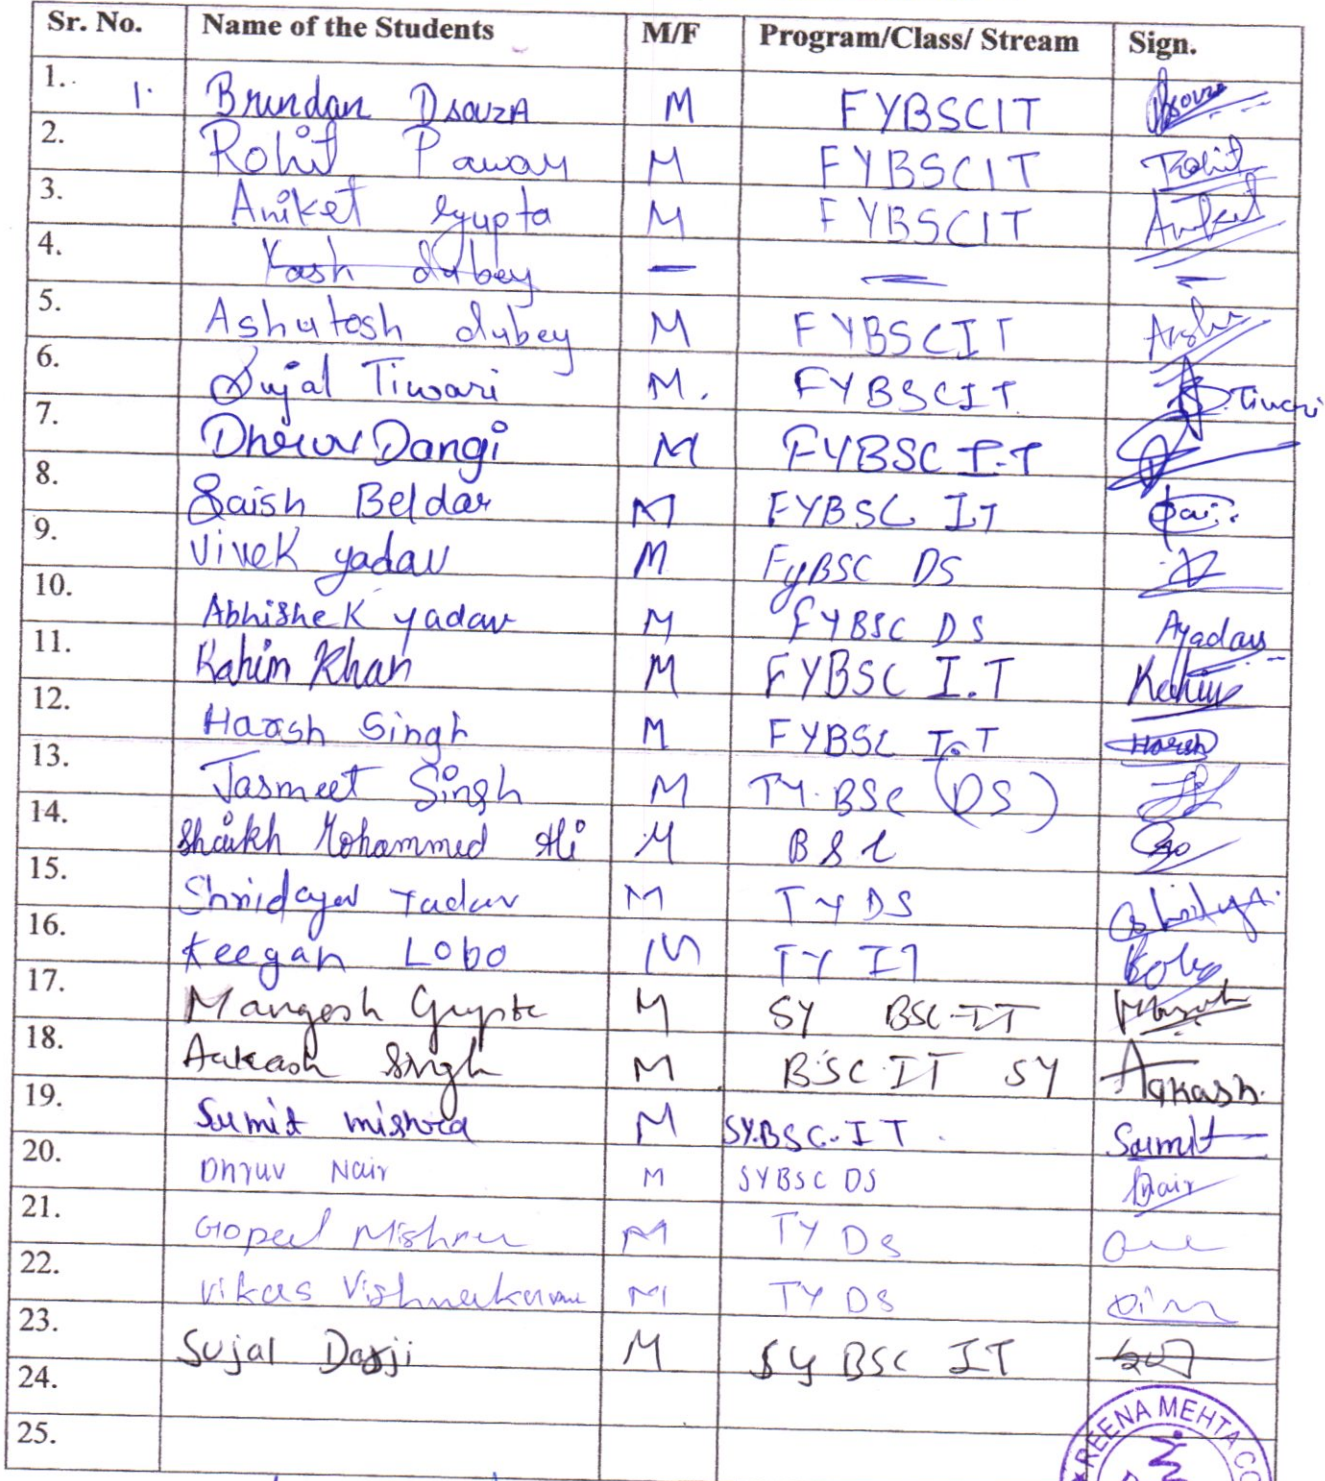 Sr. No. Name of the Students M/F Program/Class/ Stream Sign.
1. 1. Brundan Dsouza M FYBSCIT Dsouza
2. Rohit Pawar M FYBSCIT Rohit
3. Aniket Gupta M FYBSCIT Aniket
4. Yash dubey — — —
5. Ashutosh dubey M FYBSCIT Ashu
6. Sujal Tiwari M. FYBSCIT S Tiwari
7. Dhruv Dangi M FYBSC I.T
8. Saish Beldar M FYBSC IT Sai
9. Vivek yadav M FyBSC DS
10. Abhishek yadav M FYBSC DS Ayadav
11. Rahim Khan M FYBSC I.T
12. Harsh Singh M FYBSC I.T Harsh
13. Jasmeet Singh M TY.BSC (DS)
14. Shaikh Mohammed Ali M BSC
15. Yadav M TY DS
16. Keegan Lobo M TY IT
17. Mangesh Gupta M SY BSC-IT
18. Aakash Singh M BSC.IT SY Aakash.
19. Sumit mishra M SY.BSC.IT. Sumit
20. Dhruv Nair M SYBSC DS Nair
21. Gopal Mishra M TY DS
22. Vikas Vishwakarma M TY DS
23. Sujal Darji M SY BSC IT
24.
25.
REENA MEHTA CO